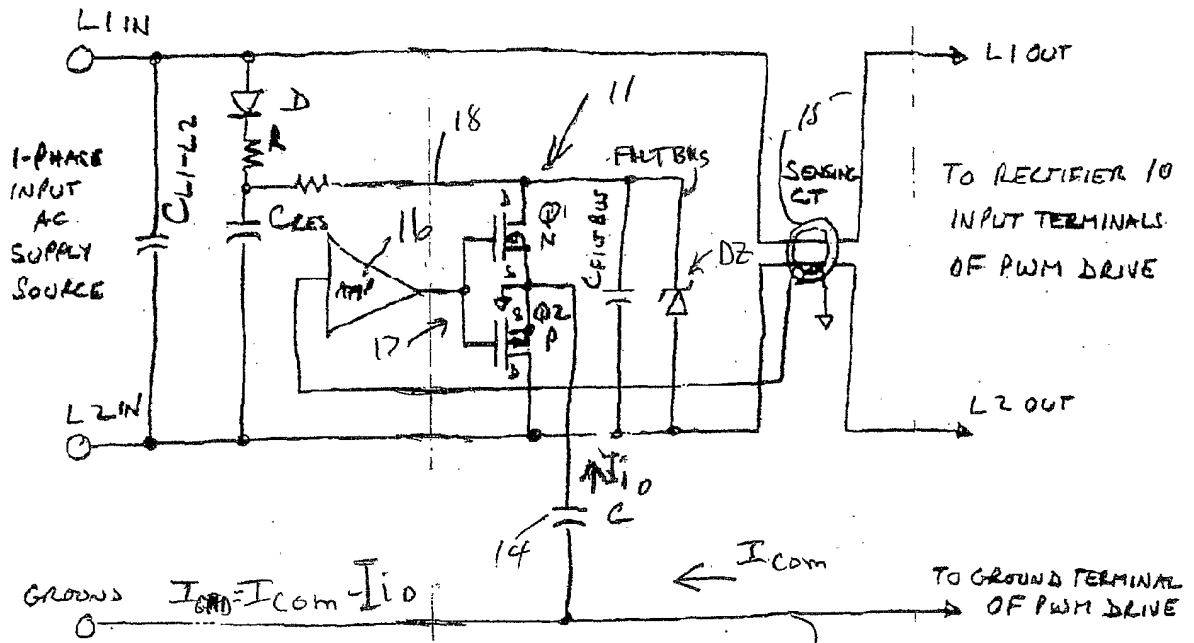 L1 IN
L1 OUT
1-PHASE
INPUT
AC
SUPPLY
SOURCE
CL1-L2
D
R
18
11
FILTBUS
15
SENSING
CT
TO RECTIFIER 10
INPUT TERMINALS
OF PWM DRIVE
CRES
16
AMP
D
Q1
N
S
S
Q2
P
D
17
CFILTBUS
DZ
L2 IN
L2 OUT
Iio
C
14
Icom
GROUND
IGND=Icom-Iio
TO GROUND TERMINAL
OF PWM DRIVE